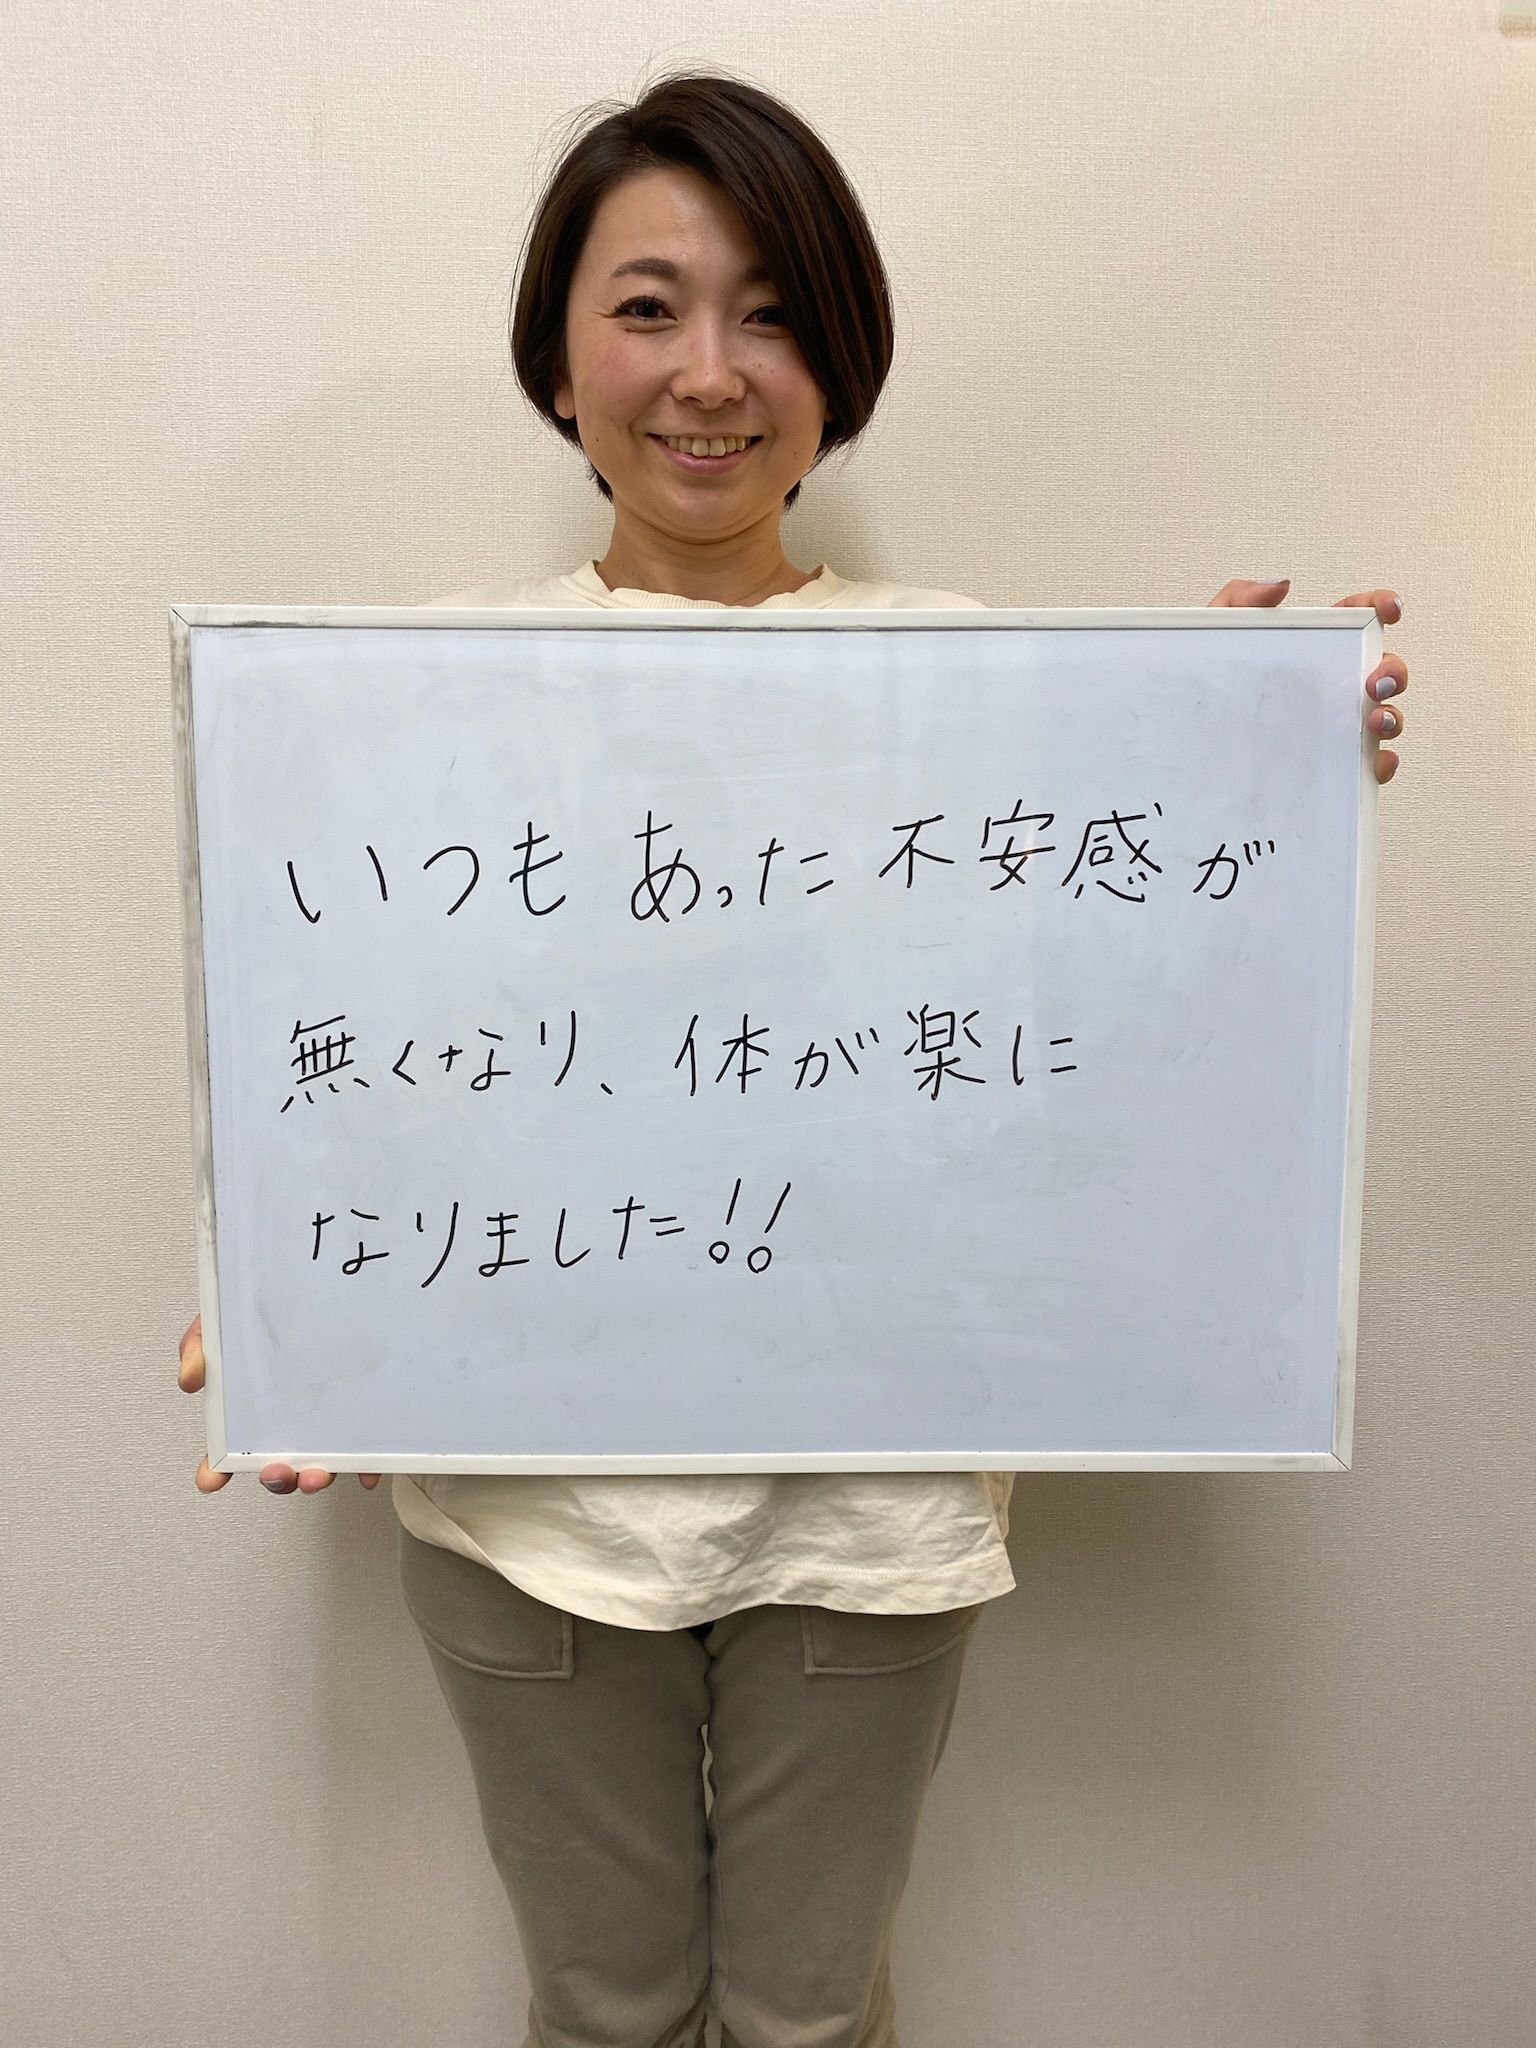 いつもあった不安感が
無くなり、体が楽に
なりました!!